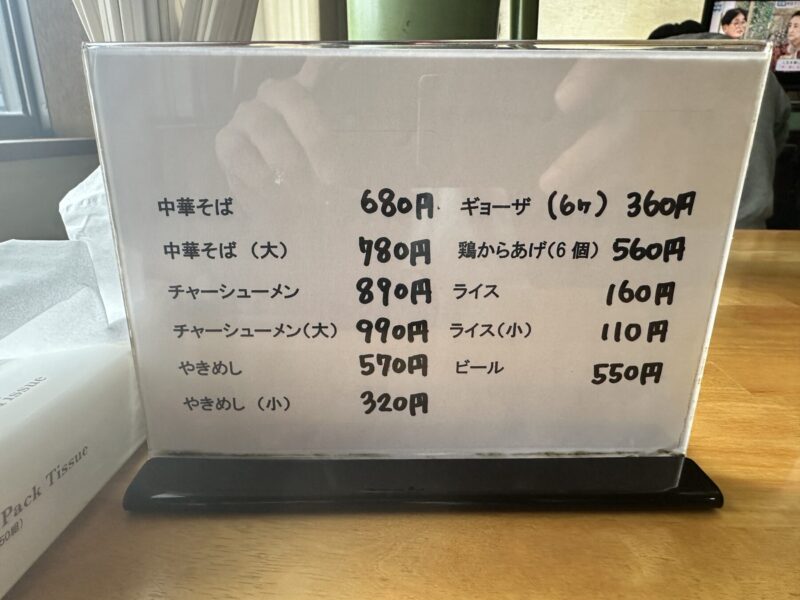 中華そば 680円
中華そば（大） 780円
チャーシューメン 890円
チャーシューメン（大） 990円
やきめし 570円
やきめし（小） 320円
ギョーザ（6ヶ） 360円
鶏からあげ（6個） 560円
ライス 160円
ライス（小） 110円
ビール 550円
Pack Tissue